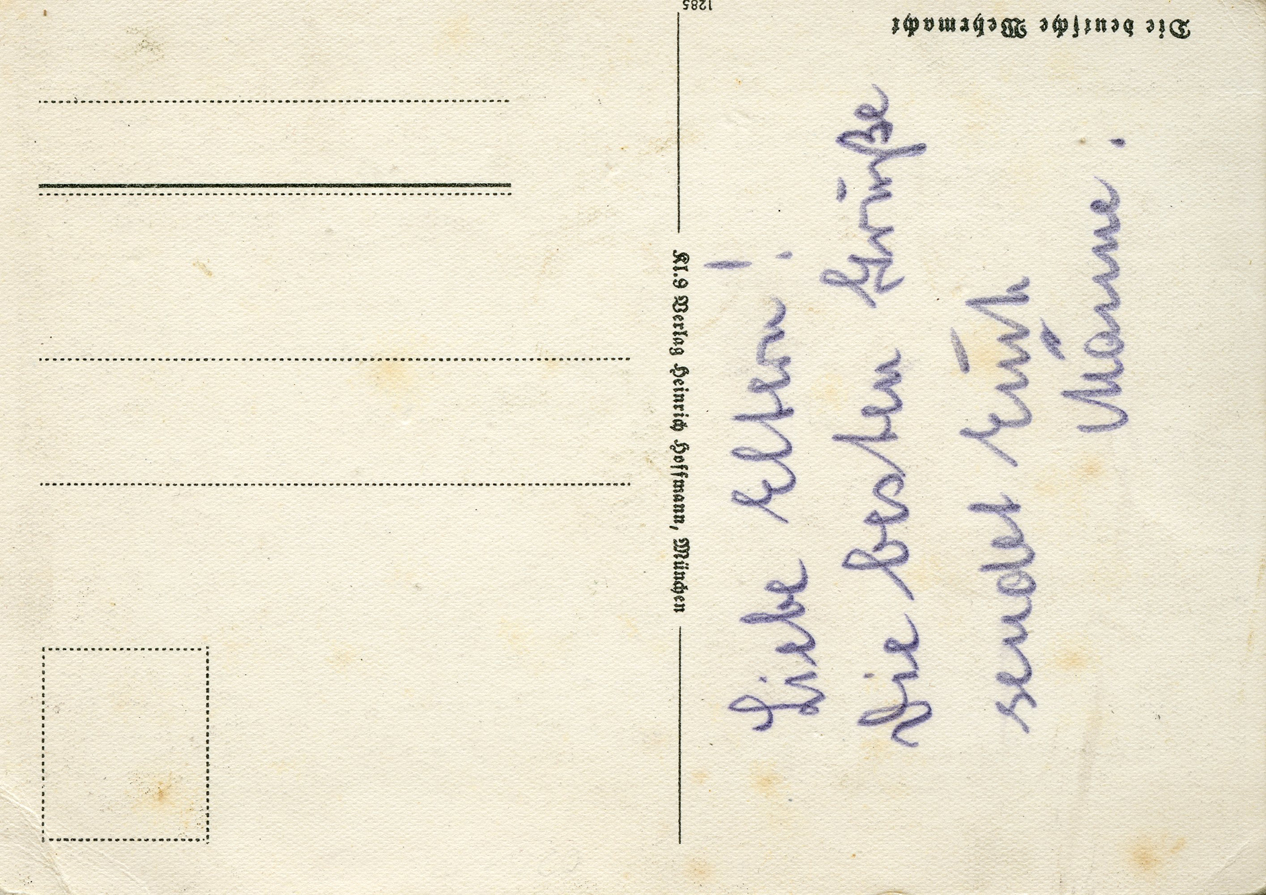 Die deutsche Wehrmacht
1285
Kl. 9 Verlag Heinrich Hoffmann, München
Liebe Eltern!
Die besten Grüße
sendet Euch
Manne.